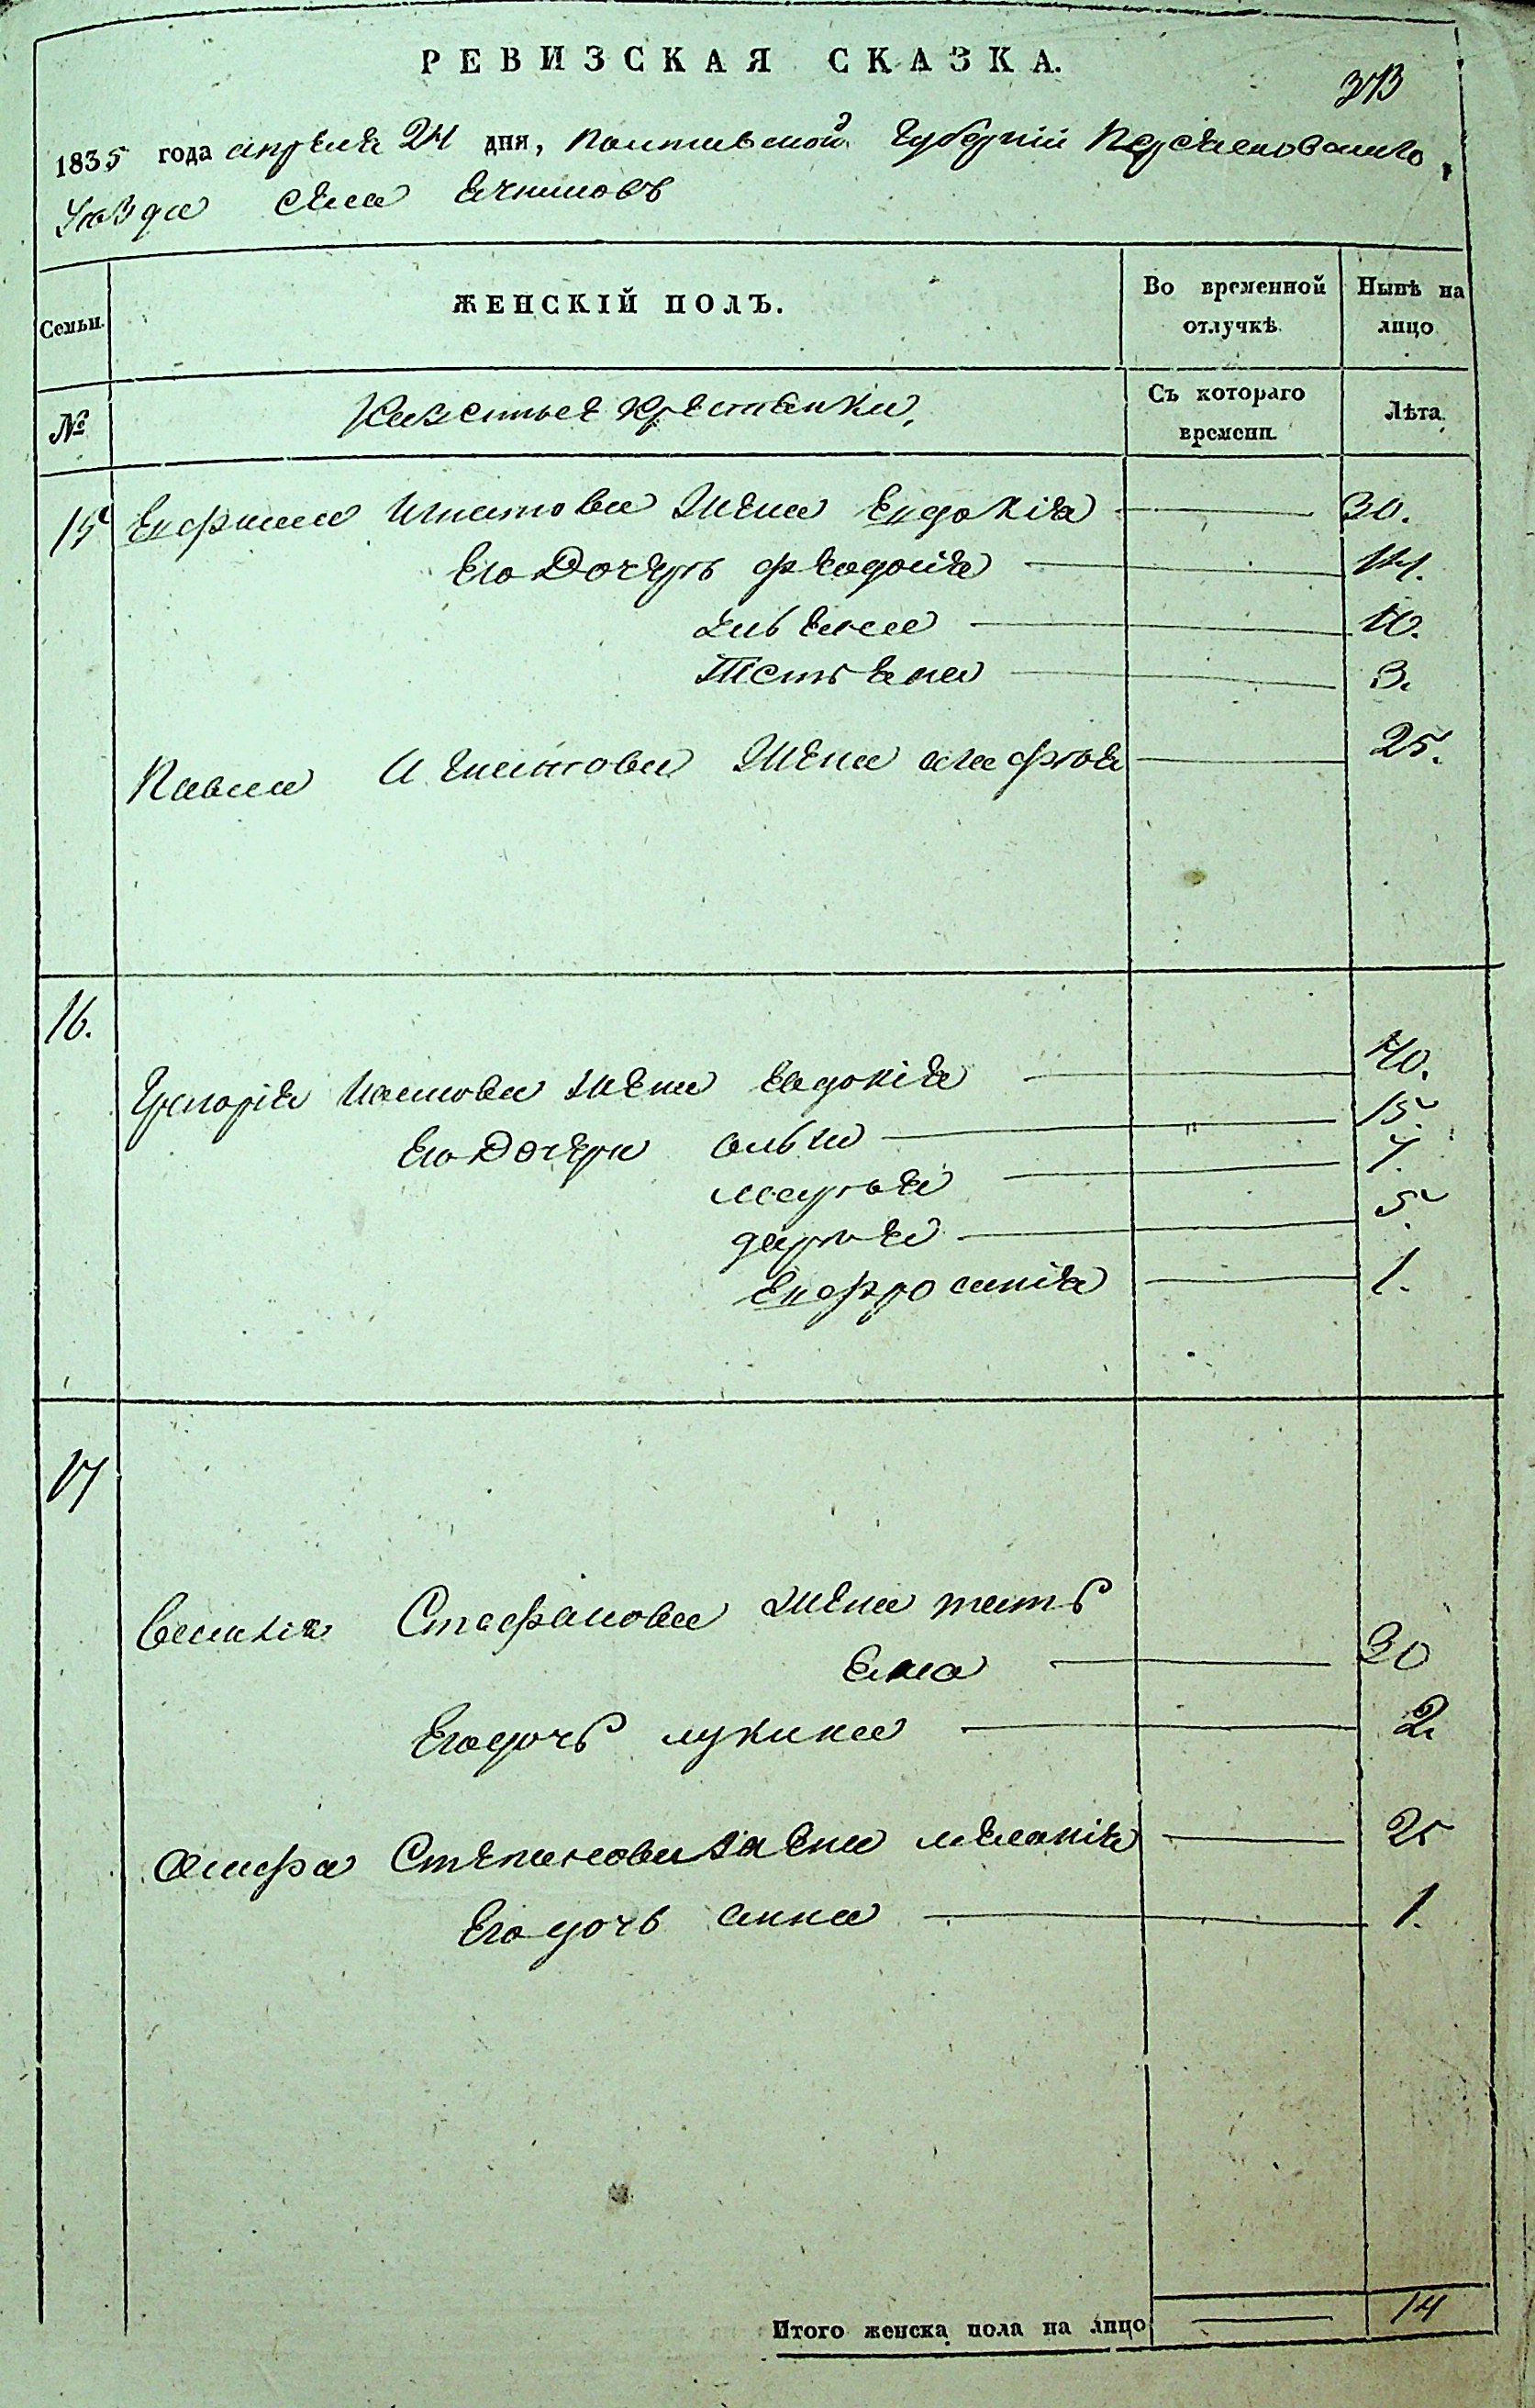 РЕВИЗСКАЯ СКАЗКА.
313
1835 года апреля 24 дня, Полтавской Губерніи Переяславского
Уѣзда села Ячников
Семьи. ЖЕНСКІЙ ПОЛЪ. Во временной отлучкѣ. Нынѣ на лицо
№ Казенные крестьянки, Съ котораго времени. Лѣта.
15 Ефрима Игнатова Жена Евдокія 30.
Его Дочерь феодосія 14.
10.
Татьяна 3.
Павла Игнатова Жена агафія 25.
16.
Григорія Жена евдокія 40.
Его Дочери 15.
марья 7.
дарья 5.
Ефросинія 1.
17
Василія Стефанова Жена тать
Яна 30
Его дочь лукина 2.
Степанова Жена меланія 25
Его дочь анна 1.
Итого женска пола на лицо 14